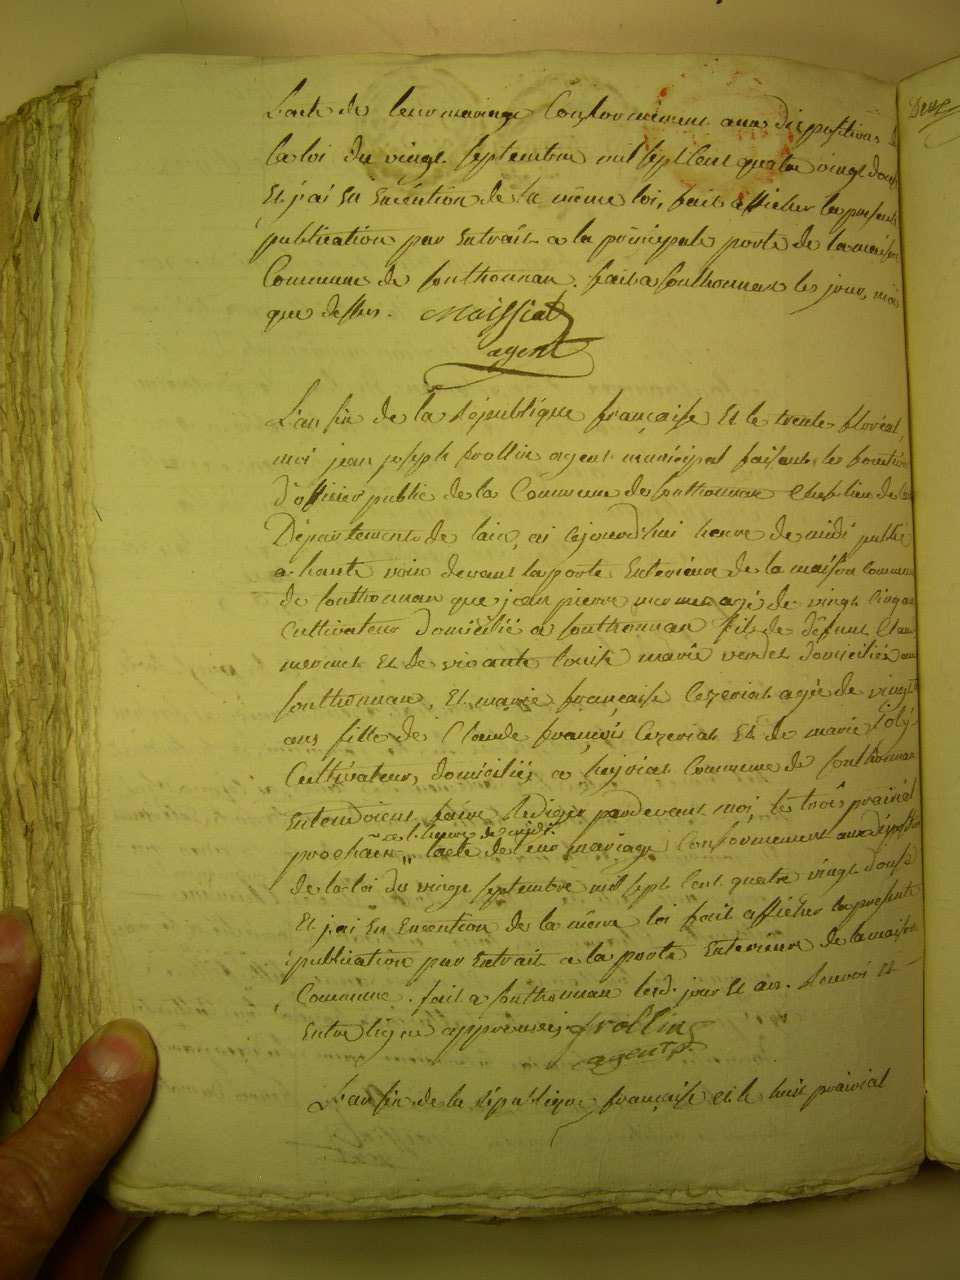 L'acte de leur mariage Conformément aux dispositions de
la loi du vingt septembre mil sept Cent quatre vingt douze
Et j'ai En Exécution de la même loi, fait afficher la présente
publication par Extrait a la principale porte de la maison
Commune de Songthonnax. fait a Songthonnax les jour, mois
que dessus.
Maissiat
agent
L'an six de la République française Et le trente floréal,
moi jean joseph frollin agent municipal faisant les fonctions
d'officier public de la Commune de Songthonnax Chef lieu de
Département de l'ain, ai cejourd'hui heure de midi publié
a haute voix devant la porte Exterieure de la maison commune
de Songthonnax que jean pierre mermet agé de vingt Cinq ans
Cultivateur domicilié a Songthonnax fils de défunt
mermet Et de vivante louise marie verdet domiciliés au
Songthonnax, Et marie françoise Cezeriat agée de vingt
ans fille de Claude françois Cezeriat Et de marie joly
Cultivateurs, domiciliés a heyriat Commune de Songthonnax
Entendoient faire Rediger pardevant moi, le trois prairial
a l'heure de midi
prochain " l'acte de leur mariage Conformément aux dispositions
de la loi du vingt septembre mil sept Cent quatre vingt douze
Et j'ai En Exécution de la même loi fait afficher la présente
publication par Extrait a la porte Exterieure de la maison
Commune. fait a Songthonnax lesd. jour Et an. Renvoi Et
Entre ligne approuvés. frollin
agent
L'an six de la République française et le huit prairial